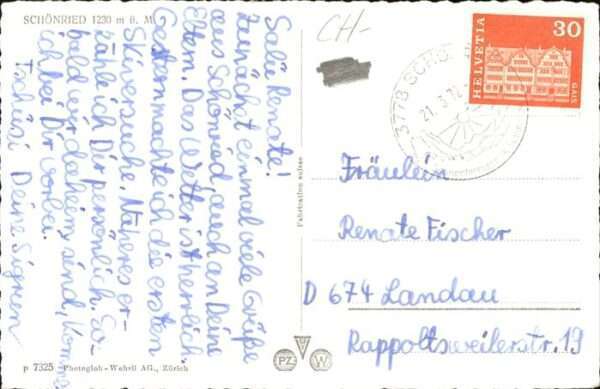 SCHÖNRIED 1230 m ü. M.
Salü Renate!
Zunächst einmal viele Grüße
aus Schönried, auch an Deine
Eltern. Das Wetter ist herrlich.
Gestern machte ich die ersten
Skiversuche. Näheres er-
zähle ich Dir persönlich. So-
bald wir daheim sind, komme
ich bei Dir vorbei.
Tschüsi Deine Sigrun
p 7325 Photoglob-Wehrli AG., Zürich
Fabrication suisse
PZ W
CH-
3778 SCHÖN
21.3.72
HELVETIA
30
GAIS
Fräulein
Renate Fischer
D 674 Landau
Rappoltsweilerstr. 19